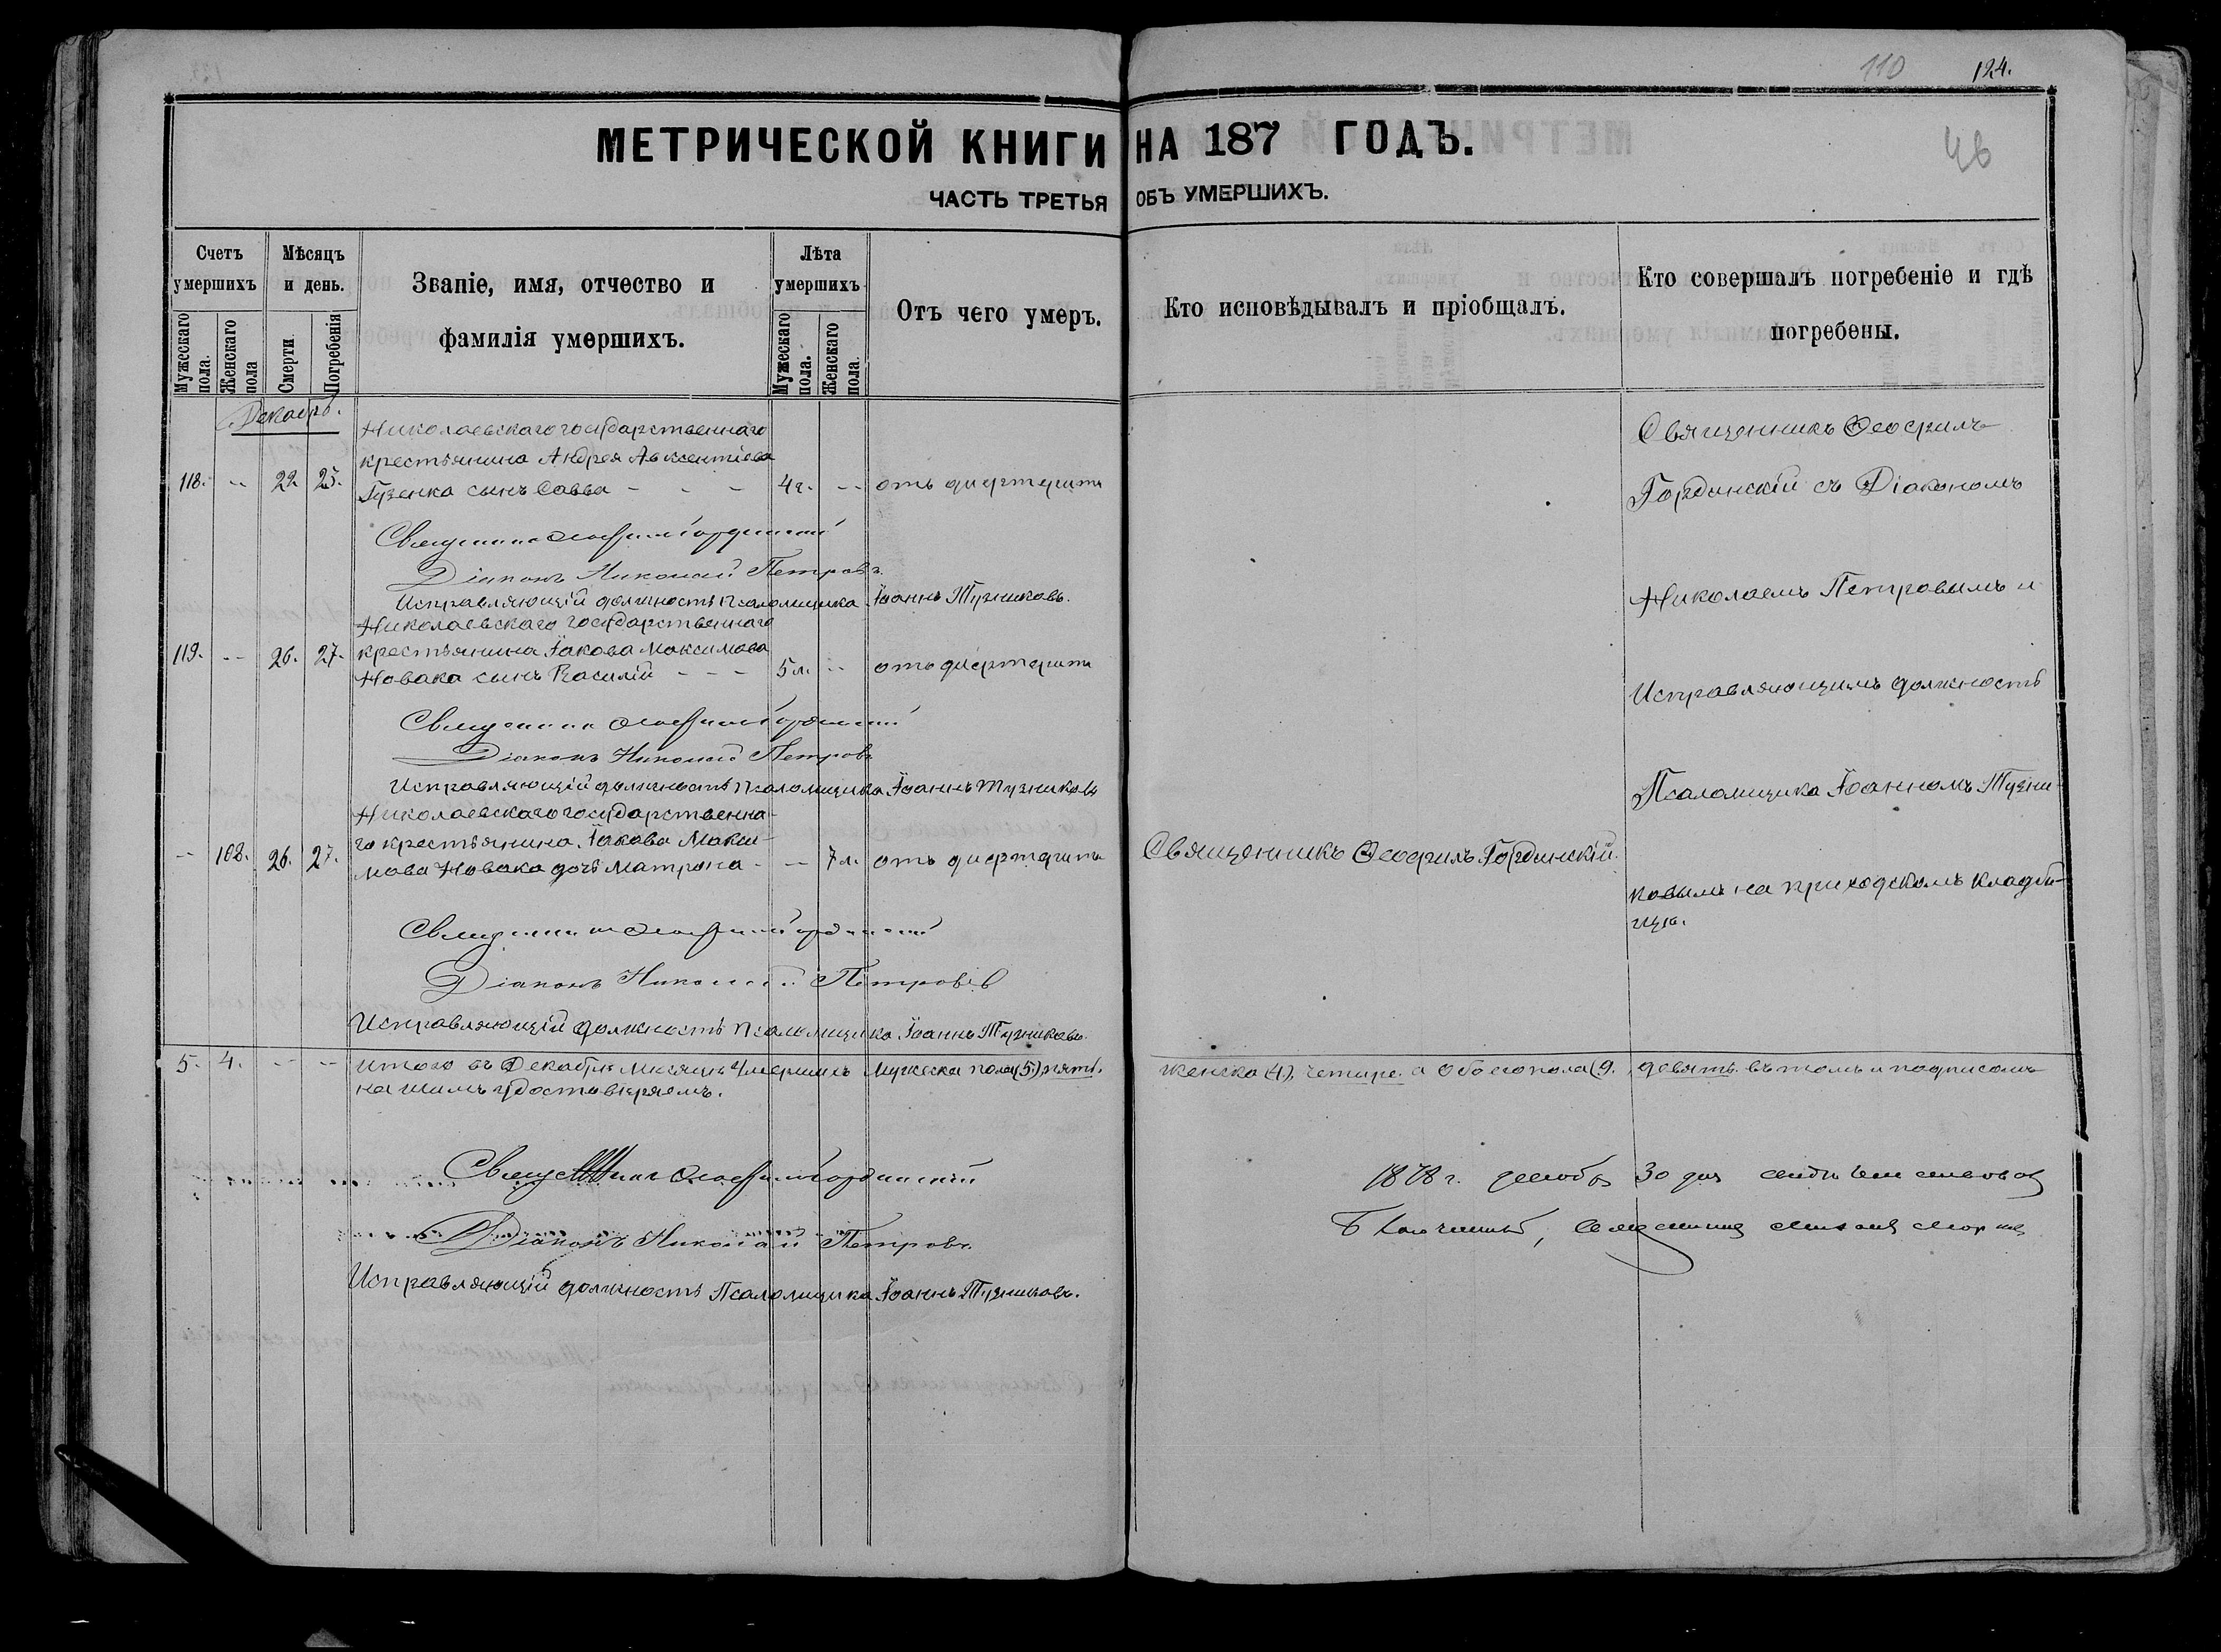 110 124.
МЕТРИЧЕСКОЙ КНИГИ НА 187 ГОДЪ.
46
ЧАСТЬ ТРЕТЬЯ ОБЪ УМЕРШИХЪ.
Счетъ умершихъ
Мужескаго пола.
Женскаго пола
Мѣсяцъ и день.
Смерти.
Погребенія
Званіе, имя, отчество и фамилія умершихъ.
Лѣта умершихъ
Мужескаго пола.
Женскаго пола.
Отъ чего умеръ.
Кто исповѣдывалъ и пріобщалъ.
Кто совершалъ погребеніе и гдѣ погребены.
Декабрь.
Николаевскаго государственнаго
крестьянина Андрея Авксентіева
118. -- 22 25. Гузенка сынъ Савва - - - 4г. -- отъ дифтерита
Священникъ Ѳеофилъ Гординскій
Діаконъ Николай Петровъ.
Исправляющій должность псаломщика Іоаннъ Тузниковъ.
Николаевскаго государственнаго
119. -- 26. 27. крестьянина Іакова Максимова
Новака сынъ Василій - - - 5л. -- отъ дифтерита
Священникъ Ѳеофилъ Гординскій
Діаконъ Николай Петровъ
Исправляющій должность псаломщика Іоаннъ Тузниковъ
Николаевскаго государственна-
-- 108. 26. 27. го крестьянина Іакова Макси-
мова Новака дочь Матрона - -- 7л. отъ дифтерита
Священникъ Ѳеофилъ Гординскій
Діаконъ Николай Петровъ
Исправляющій должность псаломщика Іоаннъ Тузниковъ.
Священникъ Ѳеофилъ Гординскій.
Священникъ Ѳеофилъ
Гординскій съ Діакономъ
Николаемъ Петровымъ и
Исправляющимъ должность
Псаломщика Іоанномъ Тузни-
ковымъ на приходскомъ кладби-
щѣ.
5. 4. -- -- Итого въ Декабрѣ мѣсяцѣ умершихъ мужеска пола (5.), пять. женска (4), четыре. а обоего пола (9. девять. въ томъ и подписомъ
нашимъ удостовѣряемъ.
Священникъ Ѳеофилъ Гординскій
Діаконъ Николай Петровъ.
Исправляющій должность Псаломщика Іоаннъ Тузниковъ.
1878 г. декабря 30 дня